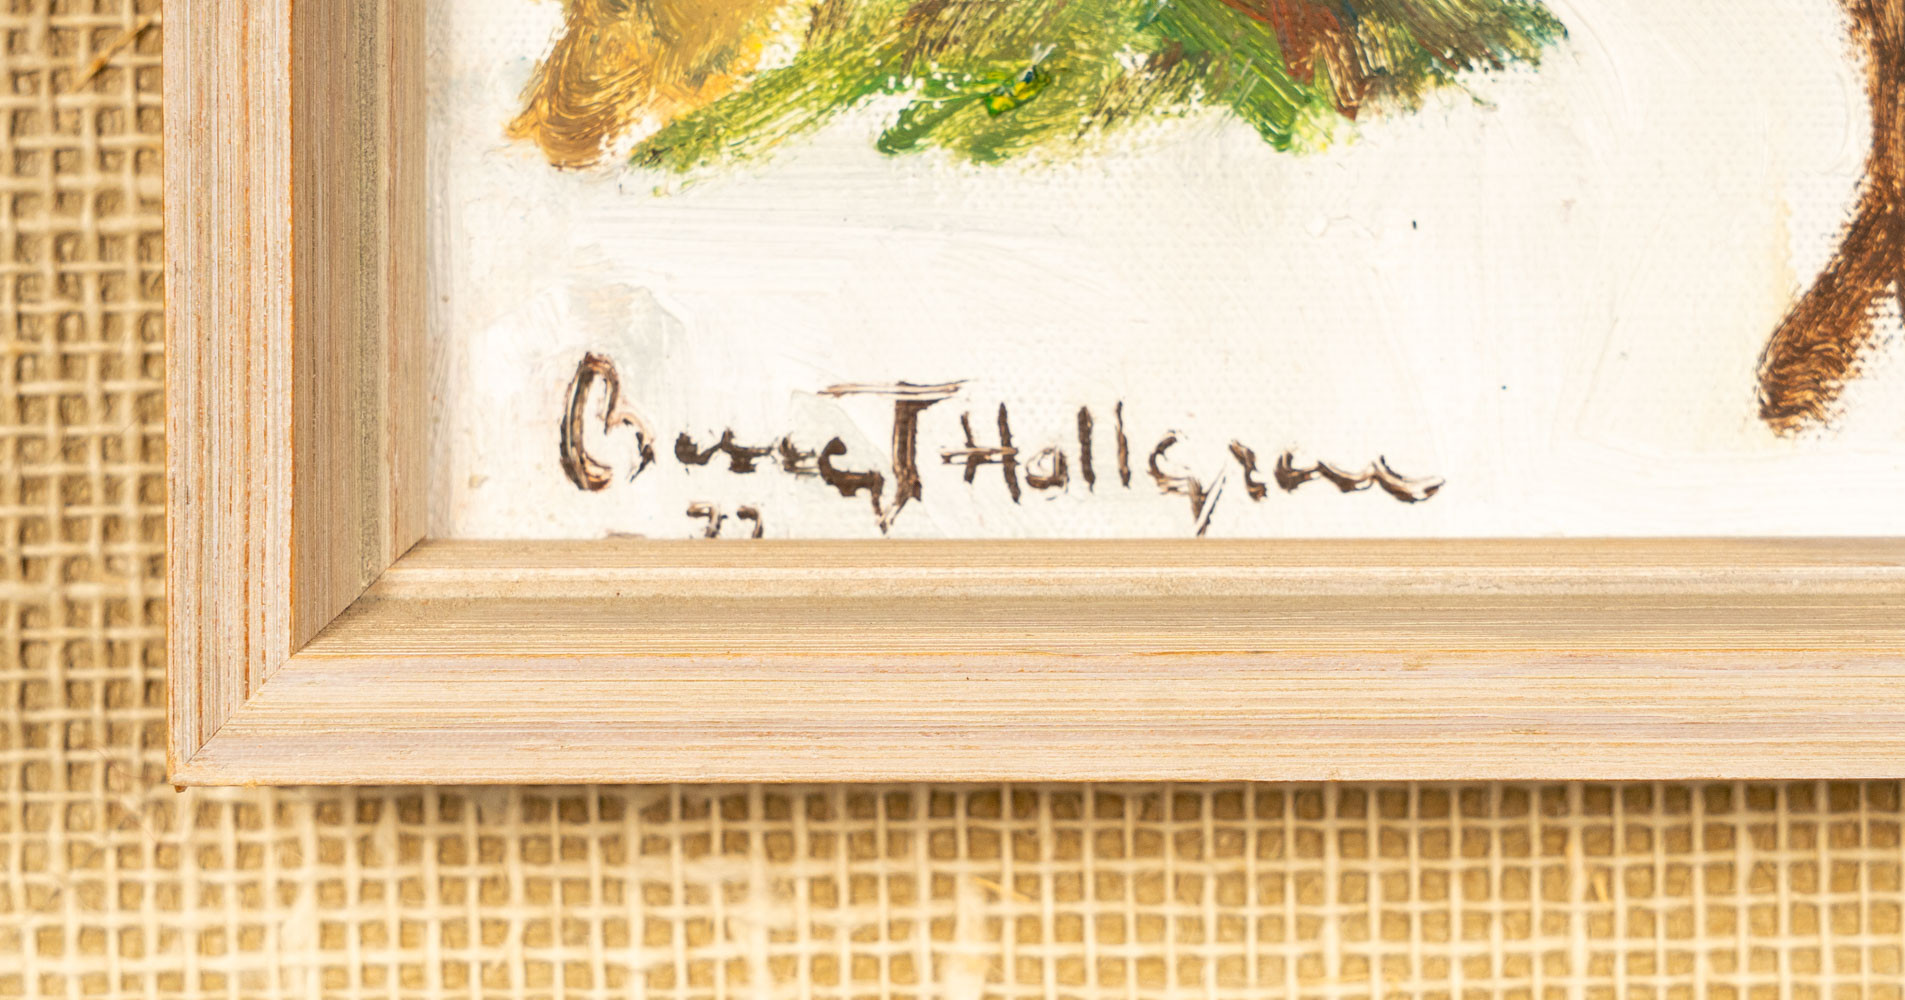 Bengt Hallgren
77